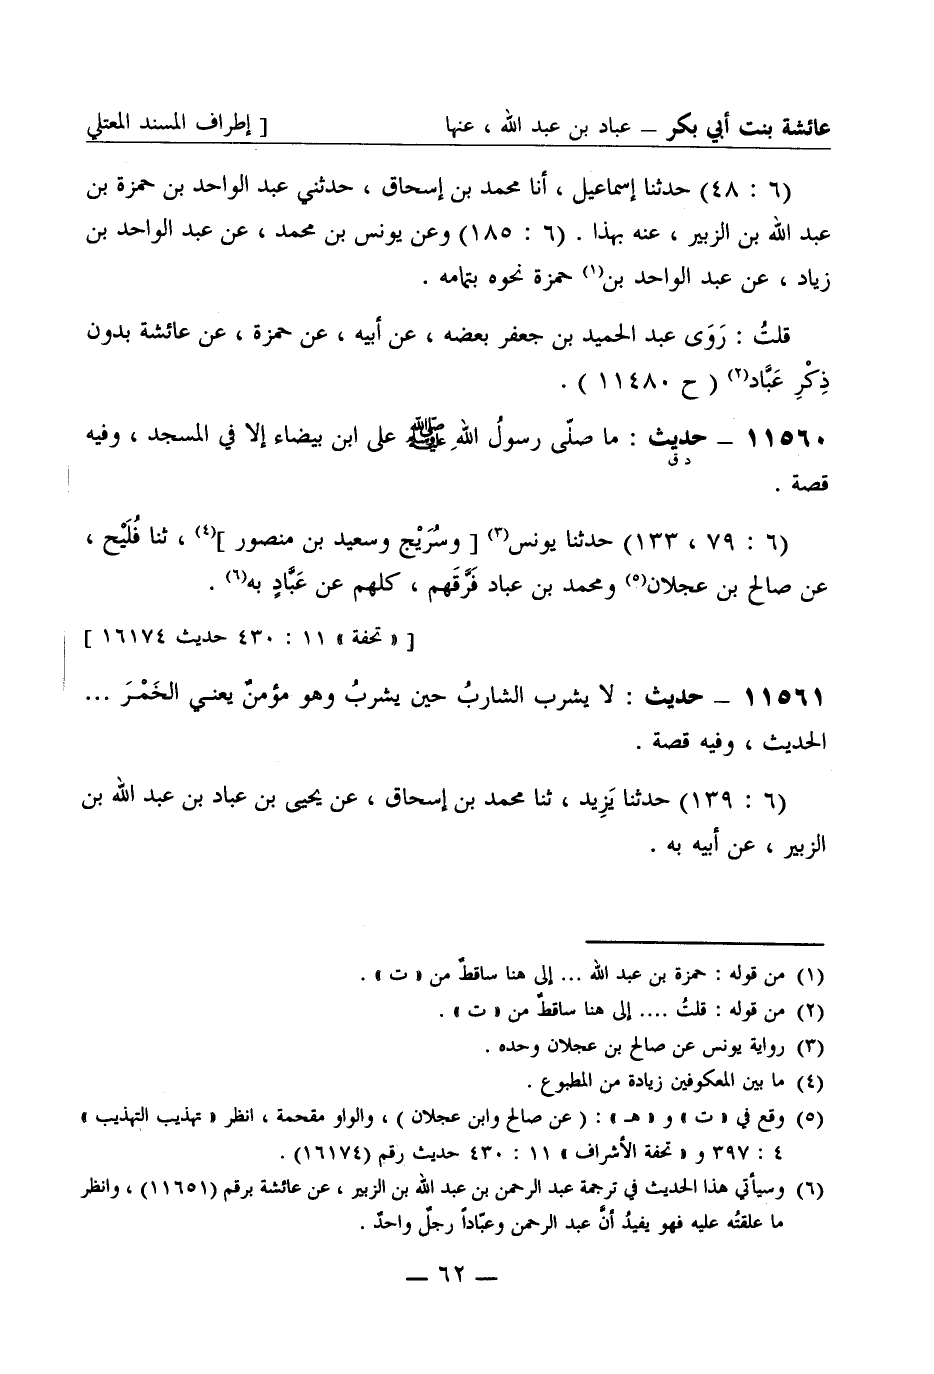 عائشة بنت أبي بكر – عباد بن عبد الله ، عنها [ إطراف المسند المعتلي
(٦ : ٤٨) حدثنا إسماعيل ، أنا محمد بن إسحاق ، حدثني عبد الواحد بن حمزة بن
عبد الله بن الزبير ، عنه بهذا . (٦ : ١٨٥) وعن يونس بن محمد ، عن عبد الواحد بن
زياد ، عن عبد الواحد بن(١) حمزة نحوه بتمامه .
قلتُ : رَوَى عبد الحميد بن جعفر بعضه ، عن أبيه ، عن حمزة ، عن عائشة بدون
ذِكْرِ عَبَّاد(٢) ( ح ١١٤٨٠ ) .
١١٥٦٠ – حديث : ما صلّى رسولُ اللهِ ﷺ على ابن بيضاء إلا في المسجد ، وفيه
د ق
قصة .
(٦ : ٧٩ ، ١٣٣) حدثنا يونس(٣) [ وسُرَيْج وسعيد بن منصور ](٤) ، ثنا فُلَيْح ،
عن صالح بن عجلان(٥) ومحمد بن عباد فَرَّقَهم ، كلهم عن عَبَّادٍ به(٦) .
[ « تحفة » ١١ : ٤٣٠ حديث ١٦١٧٤ ]
١١٥٦١ – حديث : لا يشرب الشاربُ حين يشربُ وهو مؤمنٌ يعني الخَمْرَ ...
الحديث ، وفيه قصة .
(٦ : ١٣٩) حدثنا يَزِيد ، ثنا محمد بن إسحاق ، عن يحيى بن عباد بن عبد الله بن
الزبير ، عن أبيه به .
(١) من قوله : حمزة بن عبد الله ... إلى هنا ساقطٌ من « ت » .
(٢) من قوله : قلتُ .... إلى هنا ساقطٌ من « ت » .
(٣) رواية يونس عن صالح بن عجلان وحده .
(٤) ما بين المعكوفين زيادة من المطبوع .
(٥) وقع في « ت » و « هـ » : ( عن صالح وابن عجلان ) ، والواو مقحمة ، انظر « تهذيب التهذيب »
٤ : ٣٩٧ و « تحفة الأشراف » ١١ : ٤٣٠ حديث رقم (١٦١٧٤) .
(٦) وسيأتي هذا الحديث في ترجمة عبد الرحمن بن عبد الله بن الزبير ، عن عائشة برقم (١١٦٥١) ، وانظر
ما علقتُه عليه فهو يفيدُ أنَّ عبد الرحمن وعبّاداً رجلٌ واحدٌ .
– ٦٢ –